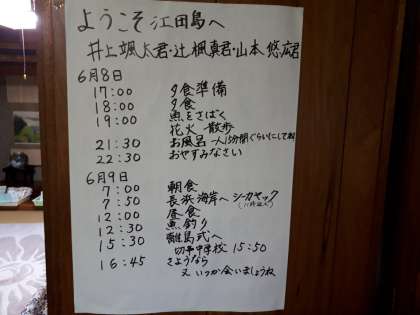 ようこそ 江田島へ
井上颯太君・辻 楓真君・山本 悠広君
6月8日
17:00 夕食準備
18:00 夕食
19:00 魚をさばく
花火 散歩
21:30 お風呂 一人15分間ぐらいにして
22:30 おやすみなさい
6月9日
7:00 朝食
7:50 長浜海岸へ シーカヤック
12:00 昼食
12:30 魚釣り
15:30 離島式へ
切串中学校 15:50
16:45 さようなら
又 いつか会いましょうね